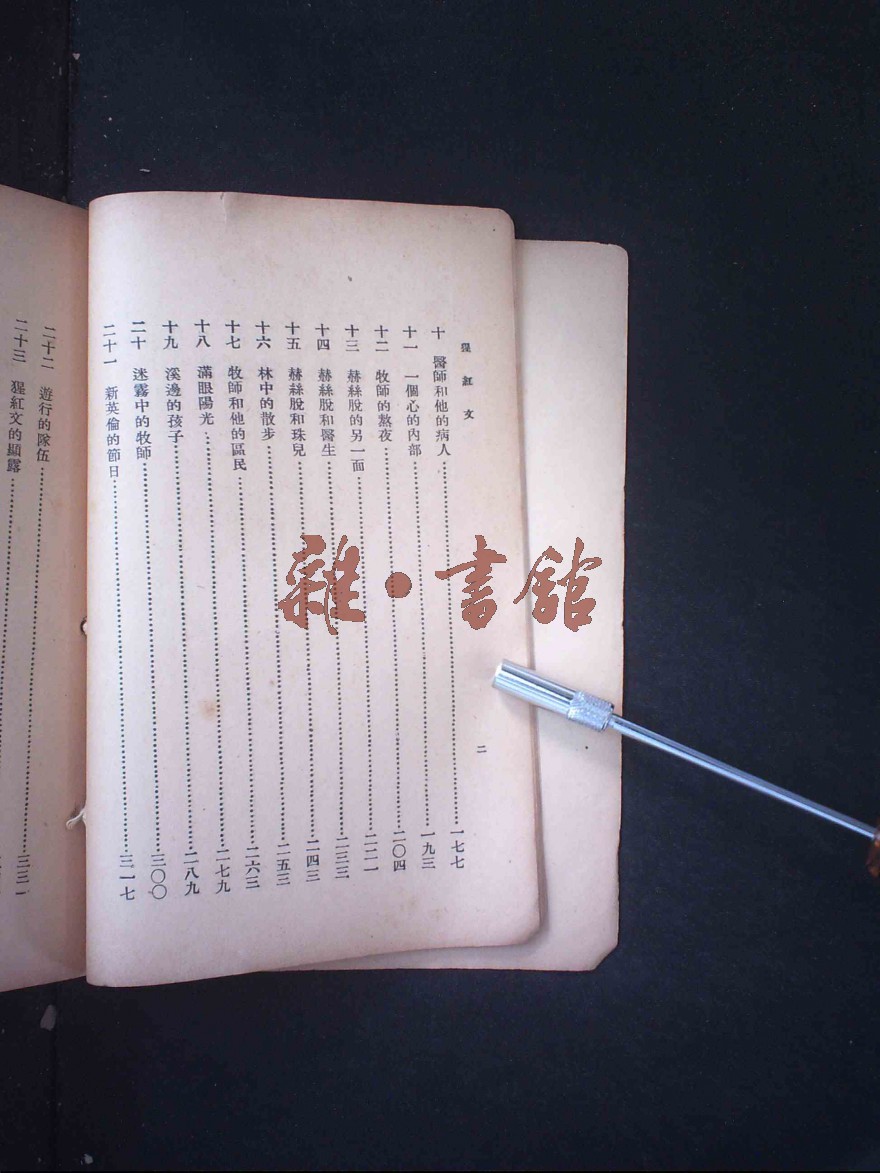 猩紅文
十 醫師和他的病人 一七七
十一 一個心的內部 一九三
十二 牧師的熬夜 二〇四
十三 赫絲脫的另一面 二二一
十四 赫絲脫和醫生 二三三
十五 赫絲脫和珠兒 二四三
十六 林中的散步 二五三
十七 牧師和他的區民 二六三
十八 滿眼陽光 二七九
十九 溪邊的孩子 二八九
二十 迷霧中的牧師 三〇〇
二十一 新英倫的節日 三一七
二
二十二 遊行的隊伍
二十三 猩紅文的顯露
雜·書館